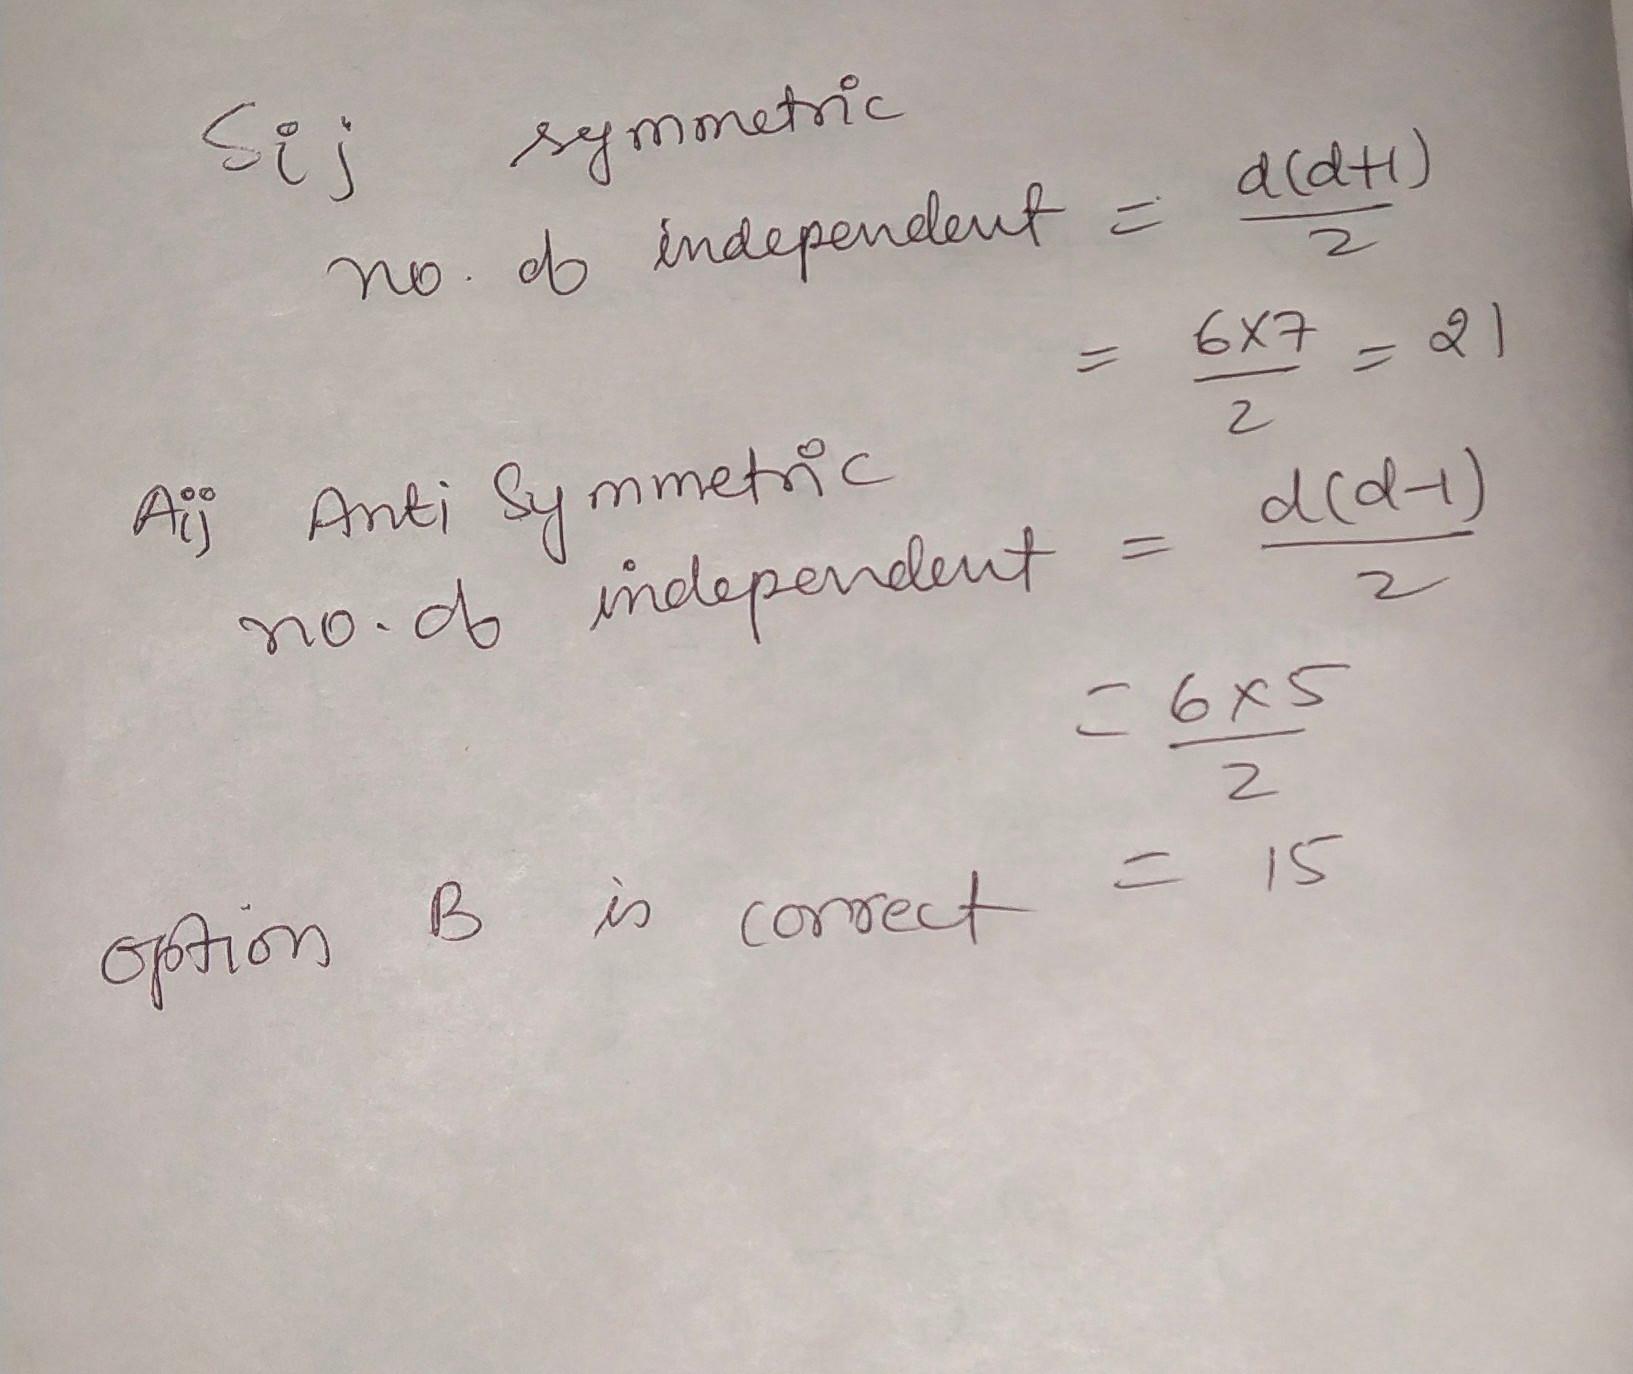 Sij symmetric
no. of independent = d(d+1)/2
= 6x7/2 = 21
Aij Anti Symmetric
no. of independent = d(d-1)/2
= 6x5/2
= 15
option B is correct